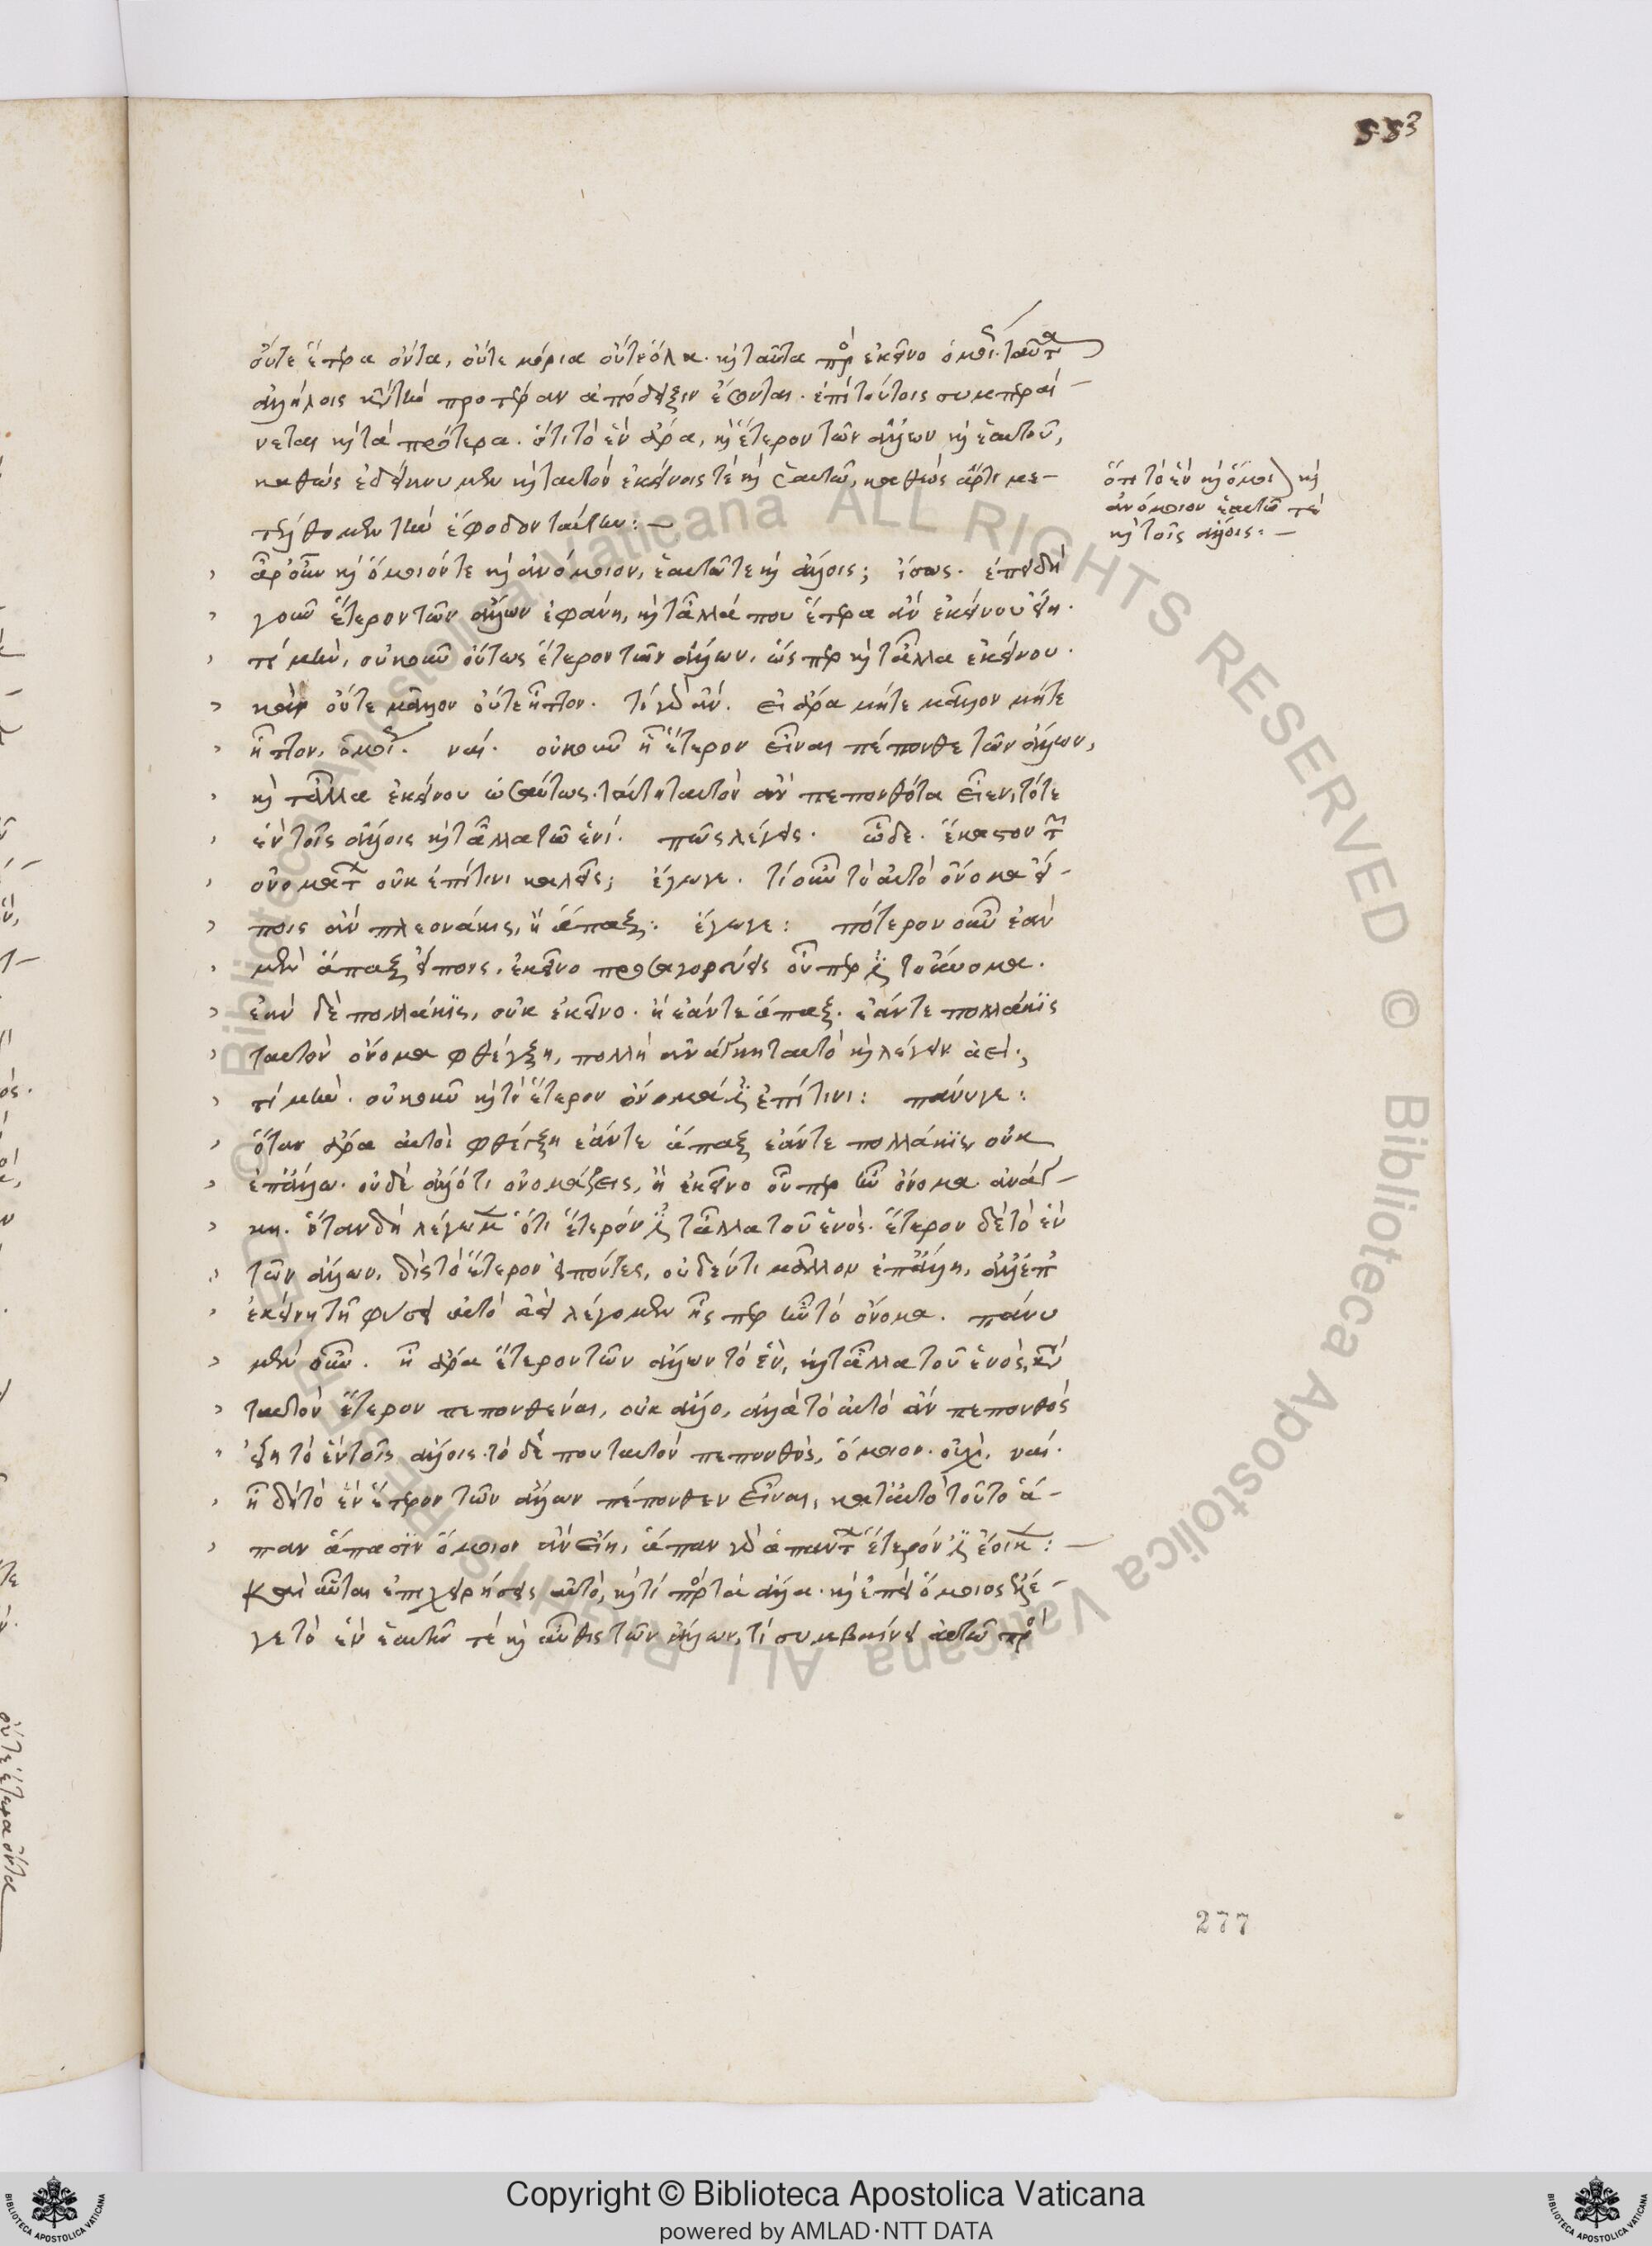 553
οὔτε ἕτερα ὄντα, οὔτε μόρια οὔτε ὅλα. καὶ ταῦτα πρὸς ἐκεῖνο ὁμοίως. ταῦτα
ἀλλήλοις κατὰ τὴν προτέραν ἀπόδειξιν ἔσονται. ἐπὶ τούτοις συμπεραί-
νεται καὶ τὰ πρότερα. ὅτι τὸ ἓν ἄρα, καὶ ἕτερον τῶν ἄλλων καὶ ἑαυτοῦ,
καθὼς ἐδείκνυμεν καὶ ταυτὸν ἐκείνοις τὲ καὶ ἑαυτῶ, καθὼς ἄρτι με-
τήλθομεν τὴν ἔφοδον ταύτην:—
ὅτι τὸ ἓν καὶ ὅμοιον καὶ
ἀνόμοιον ἑαυτῶ τὲ
καὶ τοῖς ἄλλοις:—
ἆρ' οὖν καὶ ὅμοιόν τε καὶ ἀνόμοιον, ἑαυτῶ τε καὶ ἄλλοις; ἴσως. ἐπειδὴ
γοῦν ἕτερον τῶν ἄλλων ἐφάνη, καὶ τἆλλά που ἕτερα ἂν ἐκείνου εἴη.
τί μήν, οὐκοῦν οὕτως ἕτερον τῶν ἄλλων, ὥσπερ καὶ τἆλλα ἐκείνου.
καὶ οὔτε μᾶλλον οὔτε ἧττον. τί γὰρ ἄν. εἰ ἄρα μήτε μᾶλλον μήτε
ἧττον, ὁμοίως. ναί. οὐκοῦν ἧ ἕτερον εἶναι πέπονθε τῶν ἄλλων,
καὶ τἆλλα ἐκείνου ὡσαύτως. ταύτη ταυτὸν ἂν πεπονθότα εἶεν, τότε
ἓν τοῖς ἄλλοις καὶ τἆλλα τῶ ἑνί. πῶς λέγεις. ὧδε. ἕκαστον τῶν
ὀνομάτων οὐκ ἐπί τινι καλεῖς; ἔγωγε. τί οὖν τὸ αὐτὸ ὄνομα εἴ-
ποις ἂν πλεονάκις, ἢ ἅπαξ. ἔγωγε: πότερον οὖν ἐὰν
μὲν ἅπαξ εἴποις, ἐκεῖνο προσαγορεύεις οὗπέρ ἐστι τοὔνομα.
ἐὰν δὲ πολλάκις, οὐκ ἐκεῖνο. ἢ ἐάντε ἅπαξ. ἐάντε πολλάκις
ταυτὸν ὄνομα φθέγξη, πολλὴ ἀνάγκη ταυτὸ καὶ λέγειν ἀεί.;
τί μήν. οὐκοῦν καὶ τὸ ἕτερον ὄνομά ἐστιν ἐπί τινι: πάνυ γε:
ὅταν ἄρα αὐτὸ φθέγξη ἐάντε ἅπαξ ἐάντε πολλάκις, οὐκ
ἐπ' ἄλλω. οὐδὲ ἄλλό τι ὀνομάζεις, ἢ ἐκεῖνο οὗπερ ἦν ὄνομα. ἀνάγ-
κη. ὅταν δὴ λέγωμεν ὅτι ἕτερόν ἐστι τἆλλα τοῦ ἑνός. ἕτερον δὲ τὸ ἓν
τῶν ἄλλων, δὶς τὸ ἕτερον εἰπόντες, οὐδέν τι μᾶλλον ἐπ' ἄλλη, ἀλλ' ἐπ'
ἐκείνη τῆ φύσει αὐτὸ ἀεὶ λέγομεν ἧσπερ ἦν τὸ ὄνομα. πάνυ
μὲν οὖν. ἧ ἄρα ἕτερον τῶν ἄλλων τὸ ἕν, καὶ τἆλλα τοῦ ἑνός, κατὰ
ταυτὸν ἕτερον πεπονθέναι, οὐκ ἄλλο, ἀλλὰ τὸ αὐτὸ ἂν πεπονθὸς
εἴη τὸ ἓν τοῖς ἄλλοις. τὸ δέ που ταυτὸν πεπονθὸς, ὅμοιον. οὐχί. ναί.
ἧ δὴ τὸ ἓν ἕτερον τῶν ἄλλων πέπονθεν εἶναι, κατ' αὐτὸ τοῦτο ἅ-
παν ἅπασιν ὅμοιον ἂν εἴη, ἅπαν γὰρ ἁπάντων ἕτερόν ἐστιν. ἔοικεν:—
γε τὸ ἓν ἑαυτοῦ τὲ καὶ αὖθις τῶν ἄλλων, τί συμβαίνει αὐτῶ πρὸς
277
Copyright © Biblioteca Apostolica Vaticana
powered by AMLAD·NTT DATA